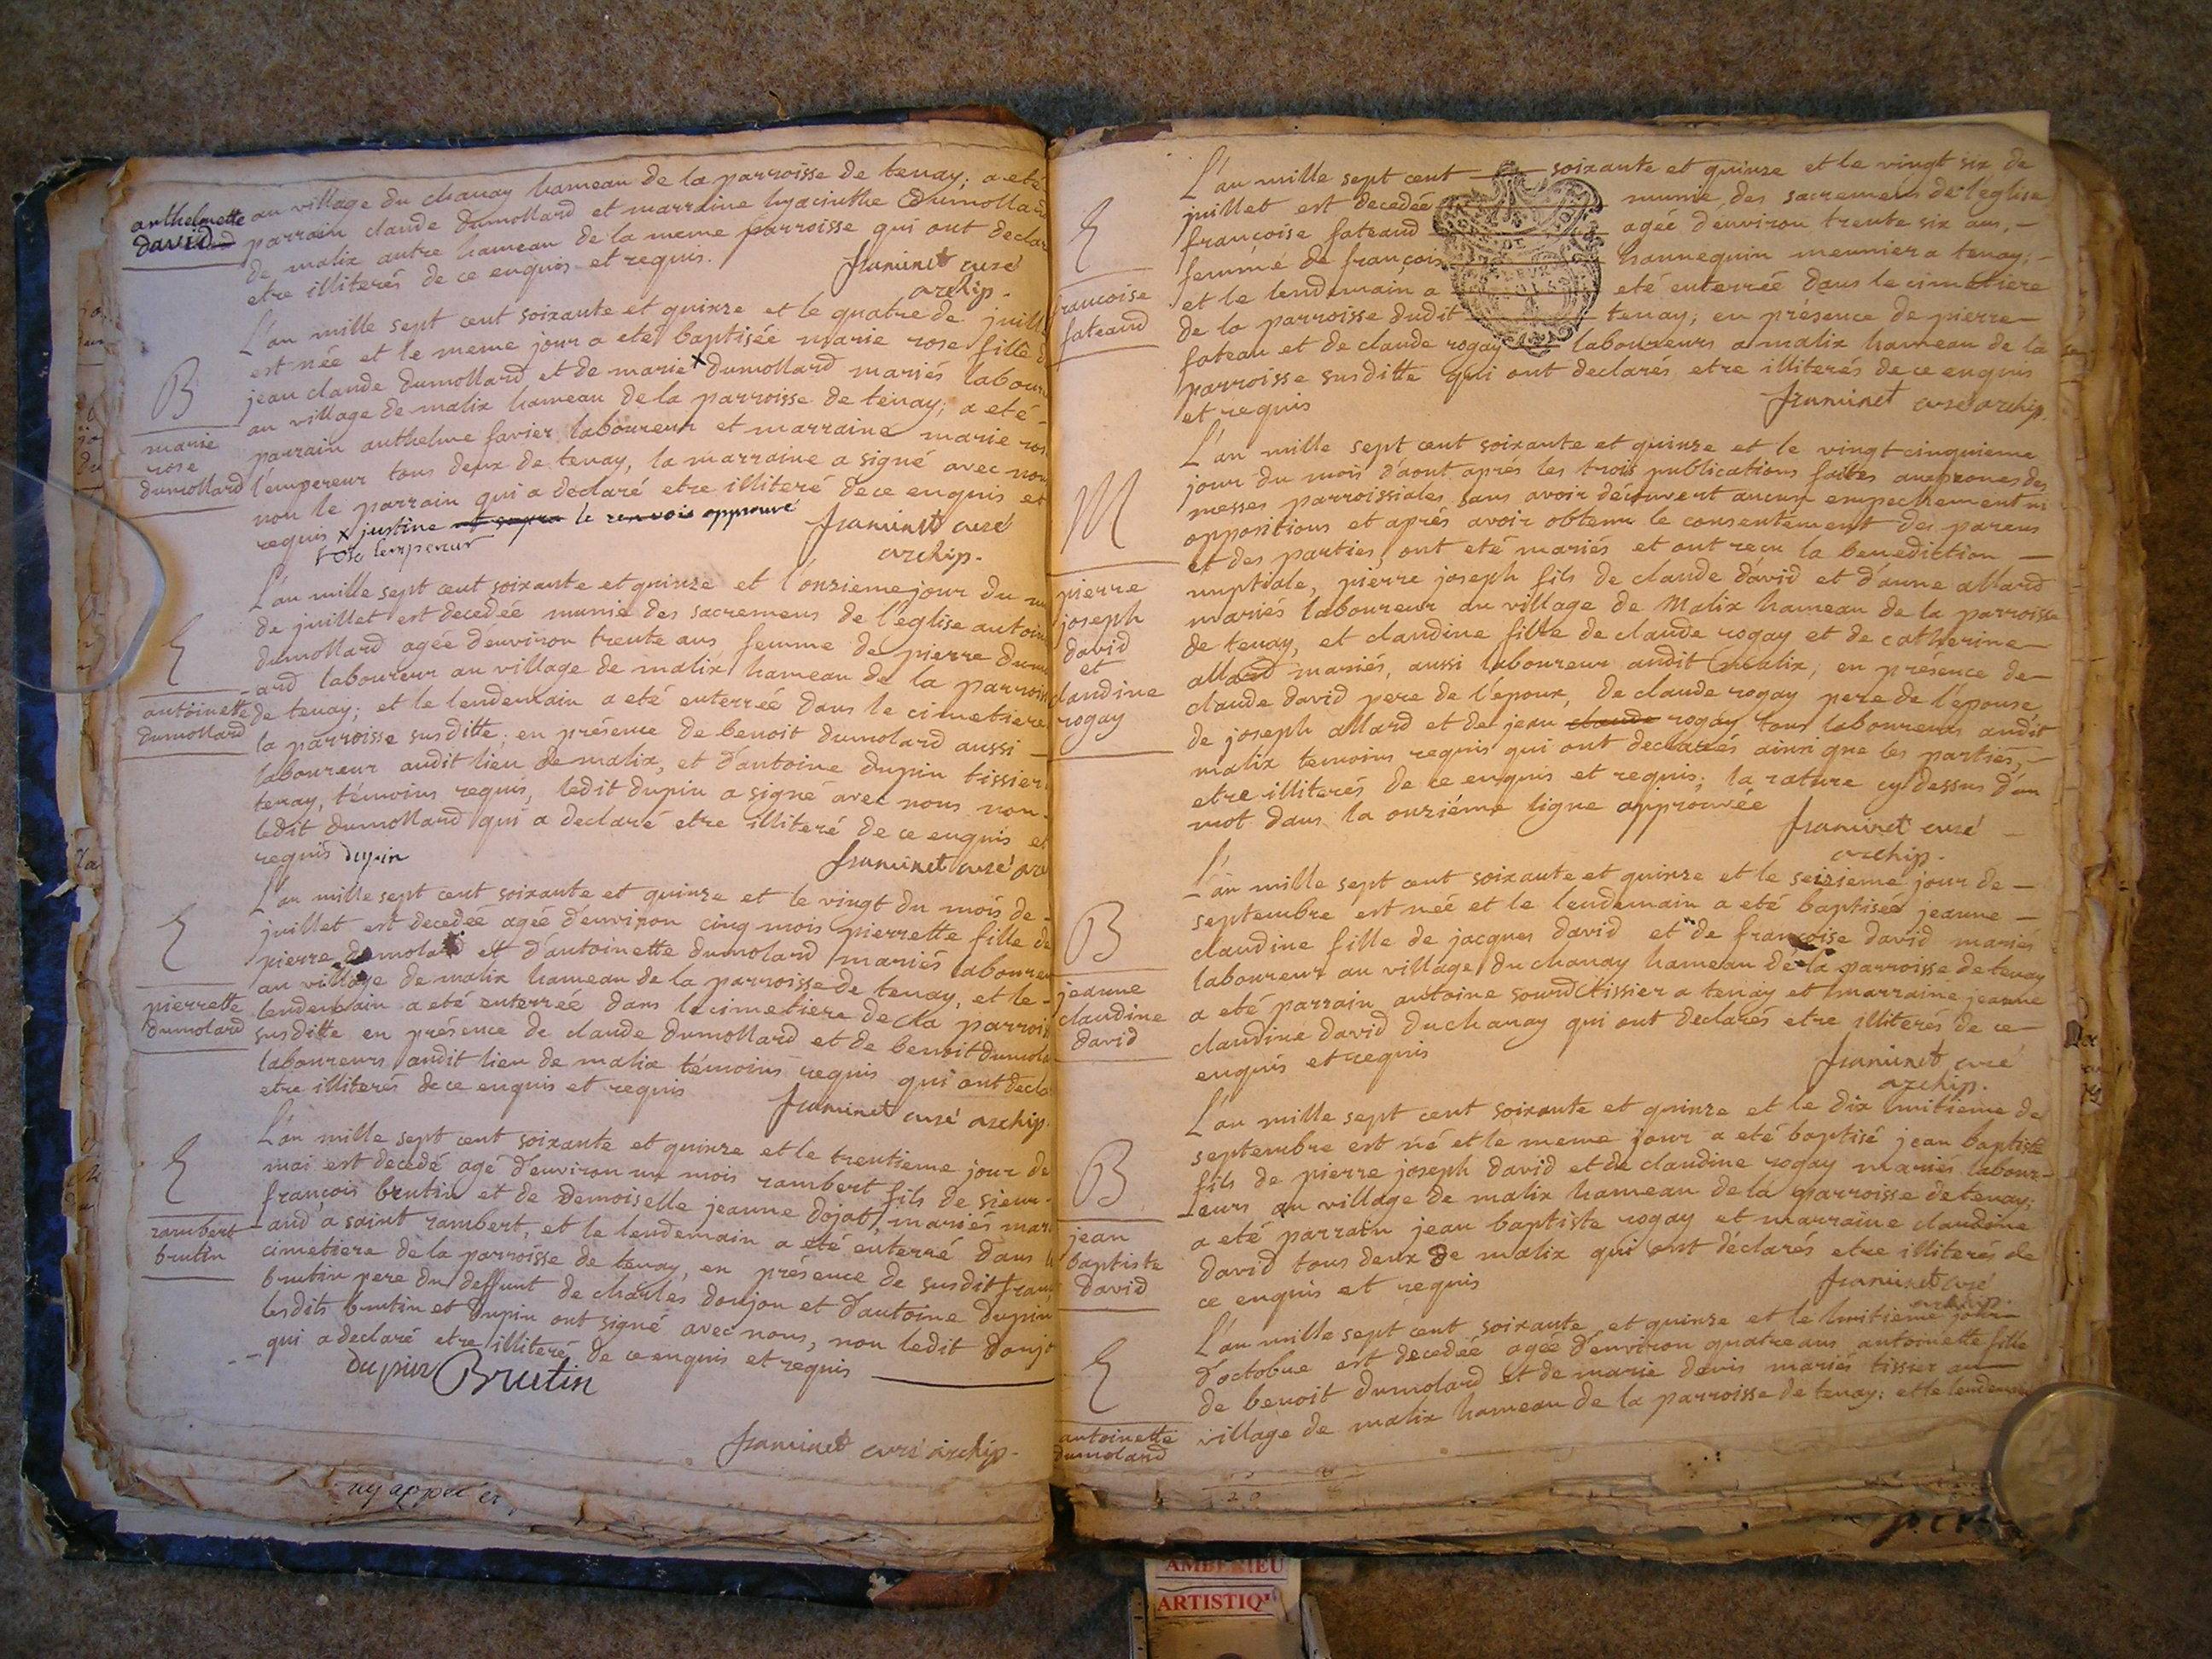 anthelmette
david
au village du chanay hameau de la parroisse de tenay; a eté
parrain claude dumollard et marraine hyacinthe dumollard
de malix autre hameau de la meme parroisse qui ont declar
etre illiterés de ce enquis et requis.
framinet curé
archip.
L'an mille sept cent soixante et quinze et le quatre de juill
est née et le meme jour a eté baptisée marie rose fille d
jean claude dumollard et de marie x dumollard mariés labour
au village de malix hameau de la parroisse de tenay; a eté
parrain anthelme favier laboureur et marraine marie ros
l'empereur tous deux de tenay, la marraine a signé avec nous
non le parrain qui a declaré etre illiteré de ce enquis et
requis x justine le renvois approuvé
lempereur
framinet curé
archip.
B
marie
rose
dumollard
L'an mille sept cent soixante et quinze et l'onzieme jour du m
de juillet est decedée munie des sacremens de l'eglise antoin
dumollard agée d'environ trente ans femme de pierre dum
ard laboureur au village de malix hameau de la parroiss
de tenay; et le lendemain a eté enterrée dans le cimetiere
la parroisse susditte; en présence de benoit dumolard aussi
laboureur audit lieu de malix, et d'antoine dupin tissier
tenay, témoins requis, ledit dupin a signé avec nous non
ledit dumollard qui a declaré etre illiteré de ce enquis et
requis dupin
framinet curé arc
E
antoinette
dumollard
L'an mille sept cent soixante et quinze et le vingt du mois de
juillet est decedeé agée d'environ cinq mois pierrette fille de
pierre dumolard et d'antoinette dumolard mariés laboureu
au village de malix hameau de la parroisse de tenay, et le
lendemain a eté enterreé dans le cimetiere de la parroiss
susditte en présence de claude dumollard et de benoit dumola
laboureurs audit lieu de malix témoins requis qui ont decla
etre illiterés de ce enquis et requis
framinet curé archip.
E
pierrette
dumolard
L'an mille sept cent soixante et quinze et le trentieme jour de
mai est decedé agé d'environ un mois rambert fils de sieur
françois brutin et de Demoiselle jeanne dojat, mariés mar
and a saint rambert, et le lendemain a eté enterré dans le
cimetiere de la parroisse de tenay, en présence de susdit fran
brutin pere du deffunt de charles donjon et d'antoine dupin
lesdits brutin et dupin ont signé avec nous, non ledit donjo
qui a declaré etre illiteré de ce enquis et requis
dupin Brutin
framinet curé archip.
E
rambert
brutin
L'an mille sept cent soixante et quinze et le vingt six de
juillet est decedée munie des sacremens de l'eglise
françoise fateaud agée d'environ trente six ans,
femme de françois hannequin meunier a tenay;
et le lendemain a eté enterrée dans le cimetiere
de la parroisse dudit tenay; en présence de pierre
fateau et de claude rogay laboureurs a malix hameau de la
parroisse susditte qui ont declarés etre illiterés de ce enquis
et requis
framinet curé archip.
E
francoise
fateaud
L'an mille sept cent soixante et quinze et le vingt cinquieme
jour du mois d'aout après les trois publications faites aux prones des
messes parroissiales sans avoir découvert aucun empechement ni
oppositions et aprés avoir obtenu le consentement des parens
et des parties, ont eté mariés et ont reçu la benediction
nuptiale, pierre joseph fils de claude david et d'anne allard
mariés laboureur au village de Malix hameau de la parroisse
de tenay, et claudine fille de claude rogay et de catherine
allard mariés, aussi laboureur audit malix, en présence de
claude david pere de l'époux, de claude rogay pere de l'épouse
de joseph allard et de jean claude rogay tous laboureurs audit
malix temoins requis qui ont declarés ainsi que les parties,
etre illiterés de ce enquis et requis; la rature cy dessus d'un
mot dans la onziéme ligne approuvée
framinet curé
archip.
M
pierre
joseph
david
et
claudine
rogay
L'an mille sept cent soixante et quinze et le seizieme jour de
septembre est neé et le lendemain a eté baptiseé jeanne
claudine fille de jacques david et de françoise david mariés
laboureur au village du chanay hameau de la parroisse de tenay
a eté parrain antoine sourd tissier a tenay et marraine jeanne
claudine david du chanay qui ont declarés etre illiterés de ce
enquis et requis
framinet curé
archip.
B
jeanne
claudine
david
L'an mille sept cent soixante et quinze et le dix huitieme de
septembre est né et le meme jour a eté baptisé jean baptiste
fils de pierre joseph david et de claudine rogay mariés labour-
eurs au village de malix hameau de la parroisse de tenay;
a eté parrain jean baptiste rogay et marraine claudine
david tous deux de malix qui ont déclarés etre illiterés de
ce enquis et requis
framinet curé
archip.
B
jean
baptiste
david
L'an mille sept cent soixante et quinze et le huitieme jour
d'octobre est decedeé agée d'environ quatre ans antoinette fille
de benoit dumolard et de marie denis mariés tissier au
village de malix hameau de la parroisse de tenay; et le lendemain
E
antoinette
dumolard
AMBERIEU
ARTISTIQU